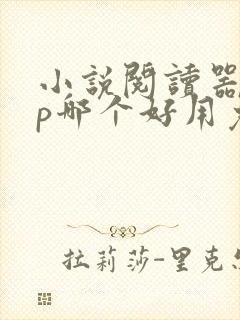 小説閱讀器
p哪个好用
拉莉莎-里克